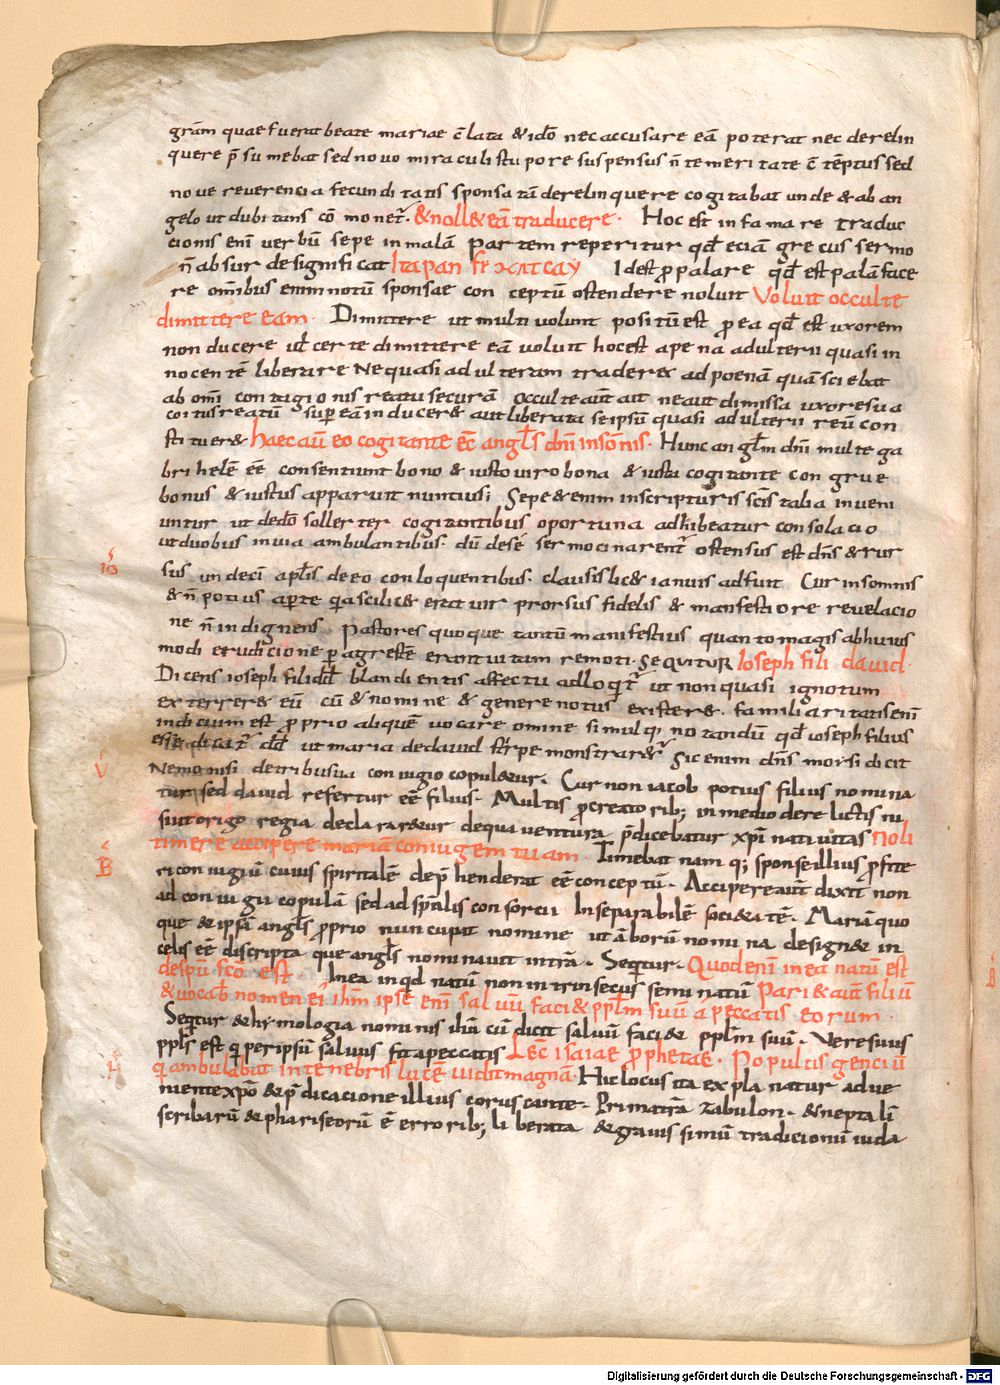 grām quae fuerat beate mariae c̄lata & idō nec accusare eā poterat nec derelin
quere p̄sumebat sed novo miraculi stupore suspensus n̄ temeritate c̄tēptus sed
nove reverencia fecunditatis sponsa tā derelinquere cogitabat unde & ab an
gelo ut dubitans cōmonet~. & noll& eā traducere. Hoc est infamare traduc
cionis enī verbū sepe in malā partem reperitur qd̄ eciā grecus sermo
n̄ absurde significat Idest ppalare qd̄ est palā face
re om̄ibus enim notū sponsae conceptū ostendere noluit Voluit occulte
dimittere eam. Dimittere ut multi volunt positū est p ea qd̄ est uxorem
non ducere ul certe dimittere eā voluit hoc est a pena adulterii quasi in
nocentē liberare Ne quasi adulteram trader& ad poenā quā sciebat
ab om̄i contagionis reatu securā occulte aūt aut ne aut dimissa uxore sua
coitus reatū super eā inducer& aut liberata seipsū quasi adulterii reū con
stituer& haec aū eo cogitante ēc̄ angl̄s dn̄i in som̄nis. Hunc angl̄m dn̄i multe ga
brihelē ēē consentiunt bono & iusto viro bona & iusta cogitante congrue
bonus & iustus apparuit nuntius; Sepe & enim in scripturis scīs talia inveni
untur ut de dō sollerter cogitantibus oportuna adhibeatur consolacio
ut duobus in via ambulantibus. dū de sē sermocinarent~ ostensus est dn̄s & rur
sus undecī apl̄is de eo conloquentibus. clausis lic& ianuis adfuit Cur in somnis
& n̄ potius aperte q̄a scilic& erat vir prorsus fidelis & manifestiore revelacio
ne n̄ indignens Pastores quoque tantū manifestius quanto magis ab huius
modi erudicione p agrestē erant vitam remoti. Sequitur Ioseph fili david.
Dicens ioseph fili dd̄ blandientis affectu adloqit~ ut non quasi ignotum
exterrer& eū cū & nomine & genere notus exister&. familiaritatis enī
indicium est pprio aliquē vocare omine simulq; notandū qd̄ ioseph filius
esse dicat~ dd̄ ut maria de david stirpe monstrar&~ Sic enim dn̄s moysi dicit
Nemo nisi de tribu sua coniugio copul&ur. Cur non iacob potius filius nomina
tur sed david refertur ēē filius. Multis pcreatorib; in medio derelictis ni
si ut origo regia declarar&ur de qua ventura p̄dicebatur xp̄i nativitas Noli
timere accipere mariā coniugem tuam Timebat namq; sponse illius pfite
ri coniugiū cuius spiritalē dep̄henderat ēē conceptū. Accipere aūt dixit non
ad coniugii copulā sed ad sp̄italis consorcii Inseparabilē societatē. Mariā quo
que & ipsā angl̄s pprio nuncupat nomine ut āborū nomina design& in
celis ēē discripta que angl̄s nominavit in trā. Sequtur. Quod enī in ea natū est
de spū scō est. In ea inq̄d natū non intrinsecus semunatū Pari& aūt filiū
& vocab nomen eī ihm̄ ipse enī salvū faci& pplm̄ suū a peccatis eorum
Sequtur & hymologia nominis ihū cū dicit salvū faci& pplm̄ suū. Vere suus
ppls̄ est qi per ipsū salvus fit a peccatis Lec̄ Isaiae pphetae. Populus genciū
qi ambulabat in tenebris lucē vidit magnā. Hic locus ita explanatur adve
niente xpō & p̄dicacione illius coruscante. Prima trā zabulon. & neptalī
scribarū & phariseorū ē errorib; liberata & gravissimū tradicionū iuda